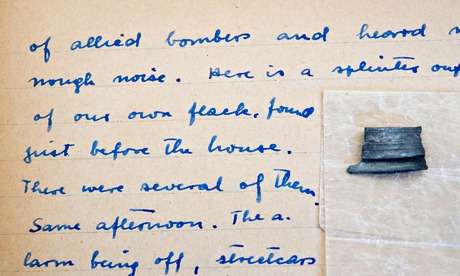 of allied bombers and heard
nough noise. Here is a splinter
of our own flack, found
just before the house.
There were several of them
Same afternoon. The a.
larm being off, streetcars